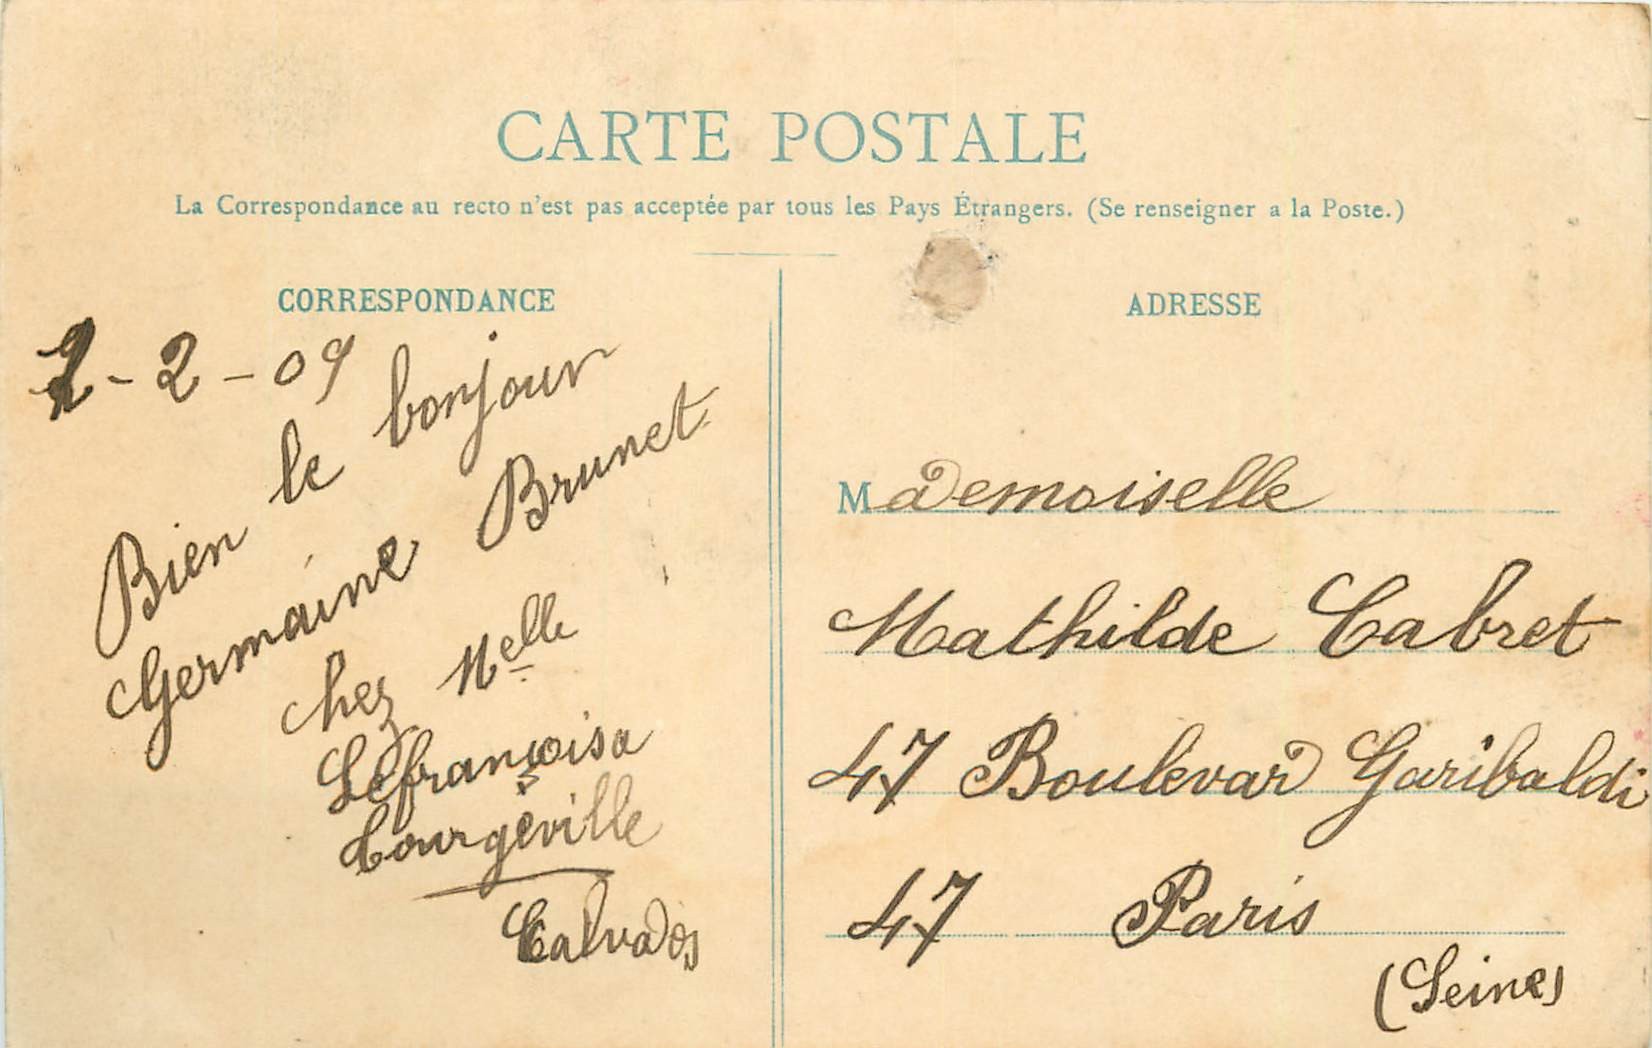 CARTE POSTALE
La Correspondance au recto n'est pas acceptée par tous les Pays Étrangers. (Se renseigner a la Poste.)
CORRESPONDANCE
2-2-09
Bien le bonjour
Germaine Brunet
chez Melle
Lefrançoisa
Tourgéville
Calvados
ADRESSE
Mademoiselle
Mathilde Cabret
47 Boulevard Garibaldi
47 Paris
(Seine)